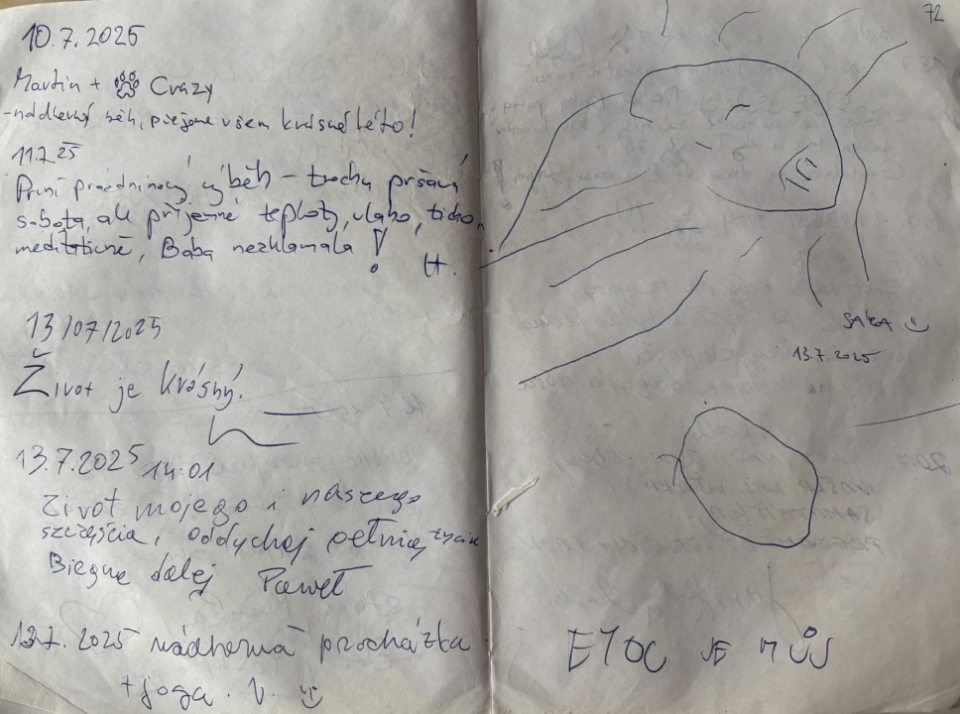 10.7.2025
Martin + Crazy
- nádherný běh, přejeme všem krásné léto!
11.7.25
První prázdninový výběh - trochu pršavá
sobota, ale příjemné teploty, vlaho, ticho,
meditativně, Baba nezklamala!
H.
13/07/2025
Život je krásný.
13.7.2025 14:01
Život mojego i naszego
szczęścia, oddychaj pełnią życia
Biegnę dalej Paweł
13.7.2025 nádherná procházka
+ joga. V. :)
72
13.7.2025
JE MŮJ